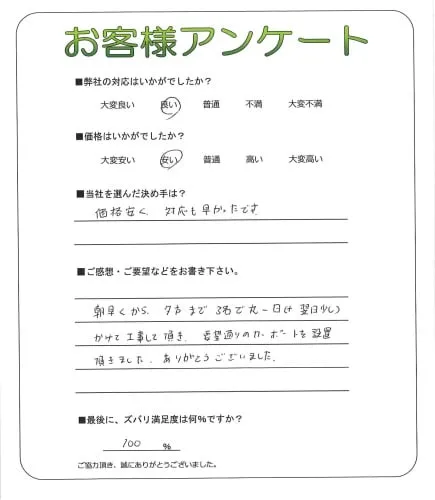 お客様アンケート
■弊社の対応はいかがでしたか？
大変良い 良い 普通 不満 大変不満
■価格はいかがでしたか？
大変安い 安い 普通 高い 大変高い
■当社を選んだ決め手は？
価格安く、対応も早かったです
■ご感想・ご要望などをお書き下さい。
朝早くから、夕方まで 3名で丸一日(+翌日少し)
かけて工事して頂き、要望通りのカーポートを設置
頂きました。ありがとうございました。
■最後に、ズバリ満足度は何%ですか？
100 %
ご協力頂き、誠にありがとうございました。